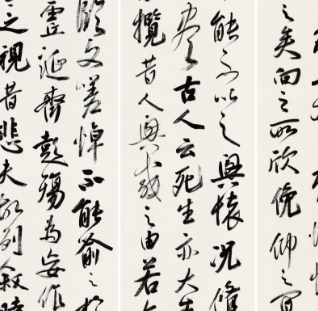 之矣向之所欣俛仰之間
能不以之興懷況脩
盡古人云死生亦大矣
攬昔人興感之由若
臨文嗟悼不能喻之於
虛誕齊彭殤為妄作
之視昔悲夫故列敘時